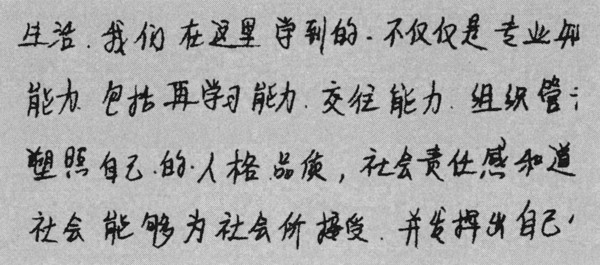 生活.我们在这里学到的.不仅仅是专业知
能力.包括再学习能力.交往能力.组织管
塑照自己的人格品质，社会责任感和道
社会能够为社会所接受.并发挥出自己